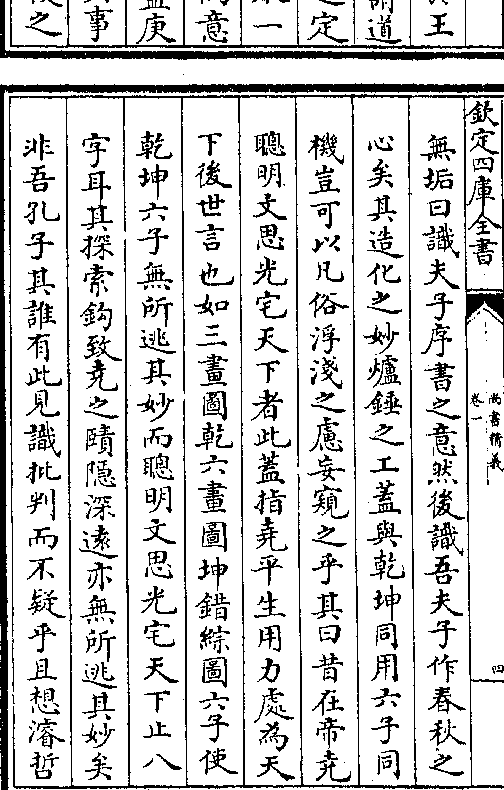 王
謂道
之定
一
意
庚
事
之
欽定四庫全書
尚書精義
卷一
四
無垢曰識夫子序書之意然後識吾夫子作春秋之
心矣其造化之妙爐錘之工蓋與乾坤同用六子同
機豈可以凡俗浮淺之慮妄窺之乎其曰昔在帝堯
聰明文思光宅天下者此蓋指堯平生用力處為天
下後世言也如三畫圖乾六畫圖坤錯綜圖六子使
乾坤六子無所逃其妙而聰明文思光宅天下止八
字耳其探索鈎致堯之賾隱深遠亦無所逃其妙矣
非吾孔子其誰有此見識批判而不疑乎且想濬哲